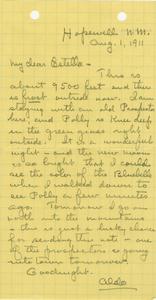 Hopewell N.M.
Aug. 1, 1911
My dear Estella -
This is
about 9500 feet and there
is frost outside now. I am
staying with an old Prospector
here, and Polly is knee deep
in the green grass right
outside. It is a wonderful
night - and the new moon
is so bright that I could
see the color of the Bluebells
when I walked down to
see Polly a few minutes
ago. Tomorrow I go on
north into the mountains
- this is just a lucky chance
for sending this out - one
of the prospectors is going
into town tomorrow.
Goodnight.
Aldo